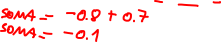 SOMA = -0.8 + 0.7
SOMA = -0.1